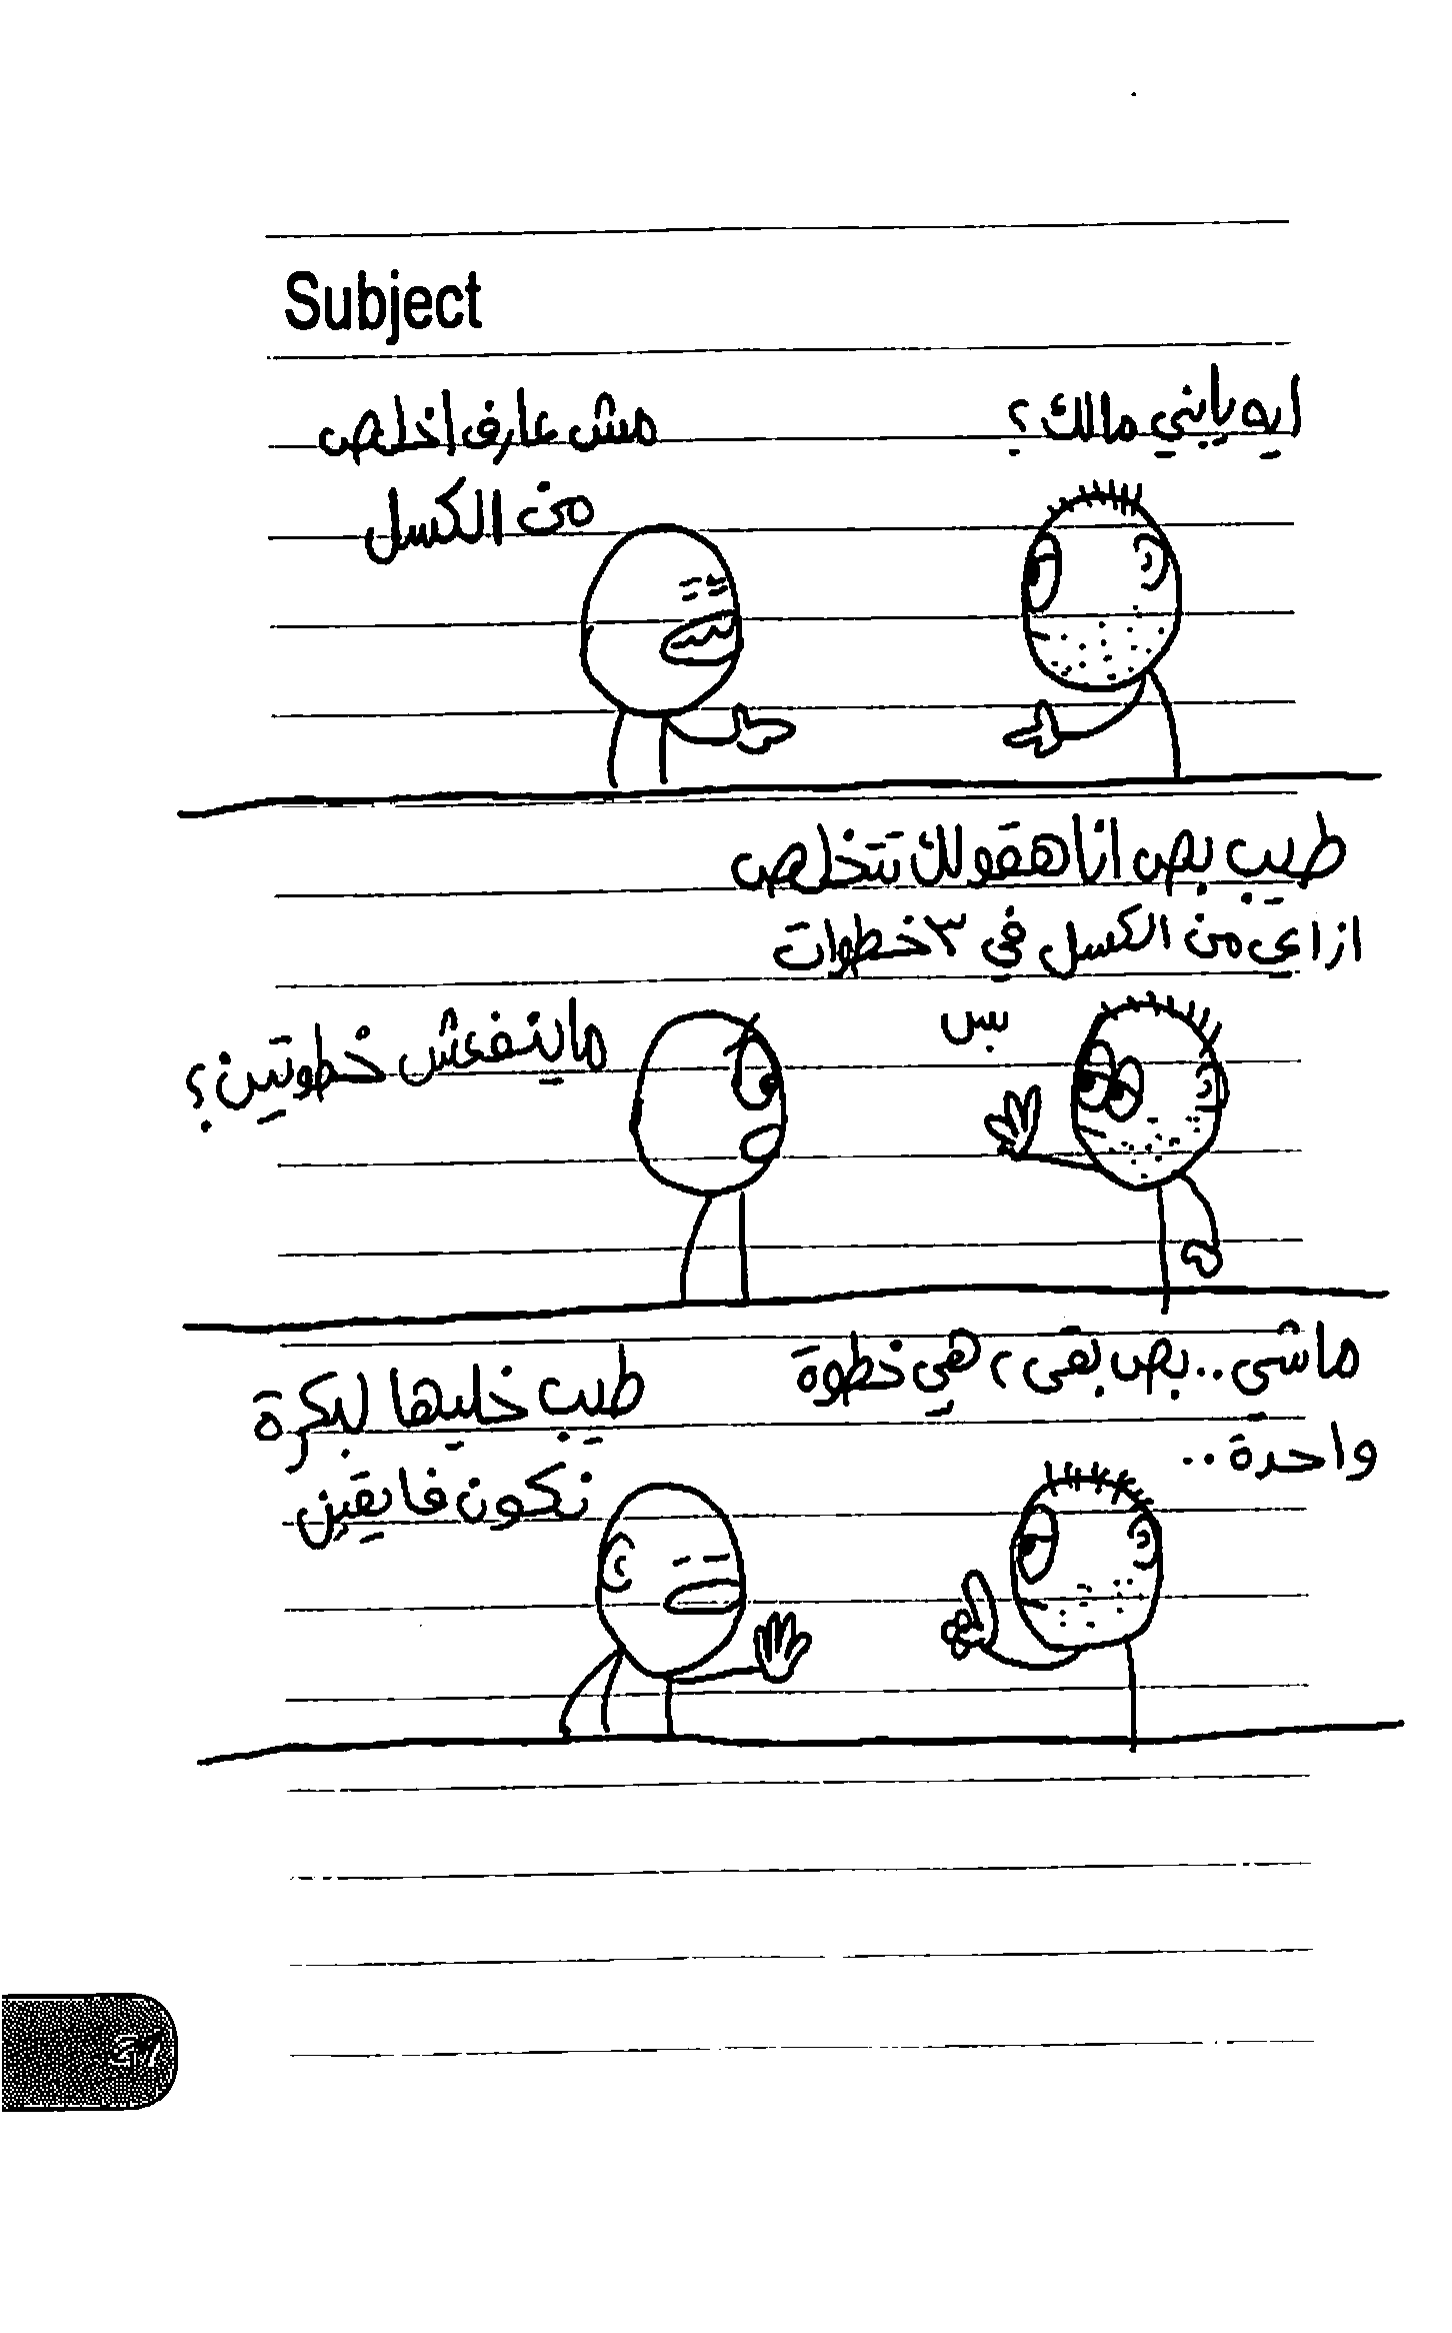 Subject
ايه يابني مالك؟
مش عارف اخلص
من الكسل
طيب بص انا هقولك تتخلص
ازاي من الكسل في ٣ خطوات
بس
ماينفعش خطوتين؟
ماشي.. بص بقى، هي خطوة
واحدة..
طيب خليها لبكرة
نكون فايقين